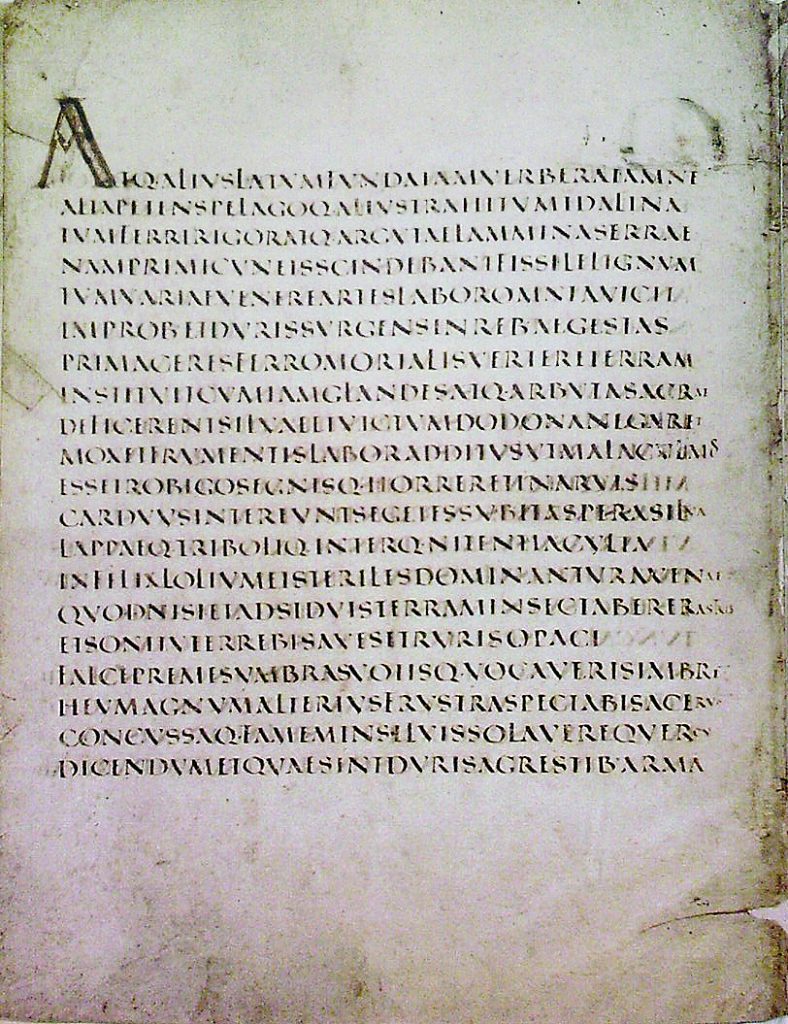 ATQALIVSLATVMFVNDAIAMVERBERATAMNE
ALTAPETENSPELAGOQALIVSTRAHITVMIDALINA
TVMFERRIRIGORATQARGVTAELAMMINASERRAE
NAMPRIMICVNEISSCINDEBANTFISSILELIGNVM
TVMVARIAEVENEREARTESLABOROMNIAVICIT
IMPROBETDVRISSVRGENSINREBAEGESTAS
PRIMACERESFERROMORTALISVERTERETERRAM
INSTITVITCVMIAMGLANDESATQARBVTASACRAE
DEFICERENTSILVAEETVICTVMDODONANEGARET
MOXETFRVMENTISLABORADDITVSVTMALACVLMOS
ESSETROBIGOSEGNISQHORRERETINARVIS
CARDVVSINTEREVNTSEGETESSVBITASPERASILVA
LAPPAEQTRIBOLIQINTERQNITENTIACVLTA
INFELIXLOLIVMETSTERILESDOMINANTVRAVENAE
QVODNISIETADSIDVISTERRAMINSECTABERERASTRIS
ETSONITVTERREBISAVESETRVRISOPACI
FALCEPREMESVMBRASVOTISQVOCAVERISIMBRE
HEVMAGNVMALTERIVSFRVSTRASPECTABISACERV
CONCVSSAQFAMEMINSILVISSOLAVEREQVERCV
DICENDVMETQVAESINTDVRISAGRESTIBARMA